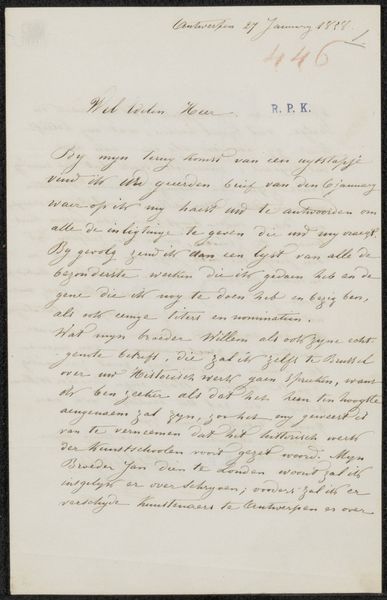 Antwerpen 27 January 1858.
446
Wel Edelen Heer. R. P. K.
By myn terug komst van een uytstapje
vind ik uw geeerden brief van den 6 january
waer op ik my haest uw te antwoorden om
alle de inligtinge te geven die uw my vraegt
By gevolg zend ik dan een lyst van alle de
bezonderste werken die ik gedaen heb en de
gene die ik nog te doen heb en bezig ben,
als ook eenige titers en nominatien.
Wat myn broeder Willem als ook zyne echt-
genote betreft, die zal ik zelfs te Brussel
over uw Historisch werk gaen spreken, want
ik ben zeeker als dat het hem ten hoogste
aengenaem zal zyn, zoo het my geweest is
van te verneemen dat het historisch werk
der Kunstschoolen voort gezet word. Myn
Broeder Jan dien te Londen woont zal ik
insgelyk er over schryven; voorders zal ik er
verschyde Kunstenaers te Antwerpen er over